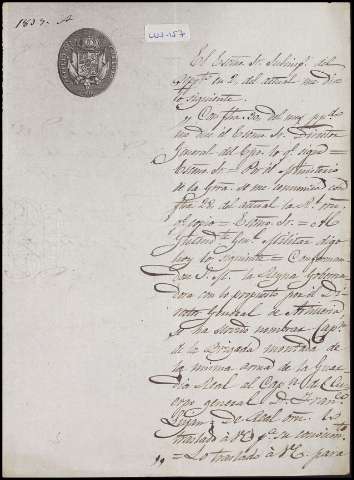 1839. A
LUJ-157
El Exmo. Sr. Subinsp.r del
Dep.to en 2. del actual me dice
lo siguiente.
„ Con fha 30 del mes pp.do
me dice el Exmo. Sr. Director
General del Cpo. lo q.e sigue =
Exmo. Sr. = Por el Ministerio
de la Grra. se me comunica con
fha 28 del actual la R.l orn.
q.e copio = Exmo. Sr. = Al
Intend.te Gen.l Militar digo
hoy lo siguiente = Conforman
dose S. M. la Reyna Goberna
dora con lo propuesto por el Di
rector General de Artilleria
se ha servido nombrar Cap.n
de la Brigada montada de
la misma arma de la Guar
dia Real al Cap.n del Cu
erpo general D. Fran.co
Lujan; De Real orn. lo
traslado à V.E. p.a su conocim.to
= Lo traslado à V.E. para